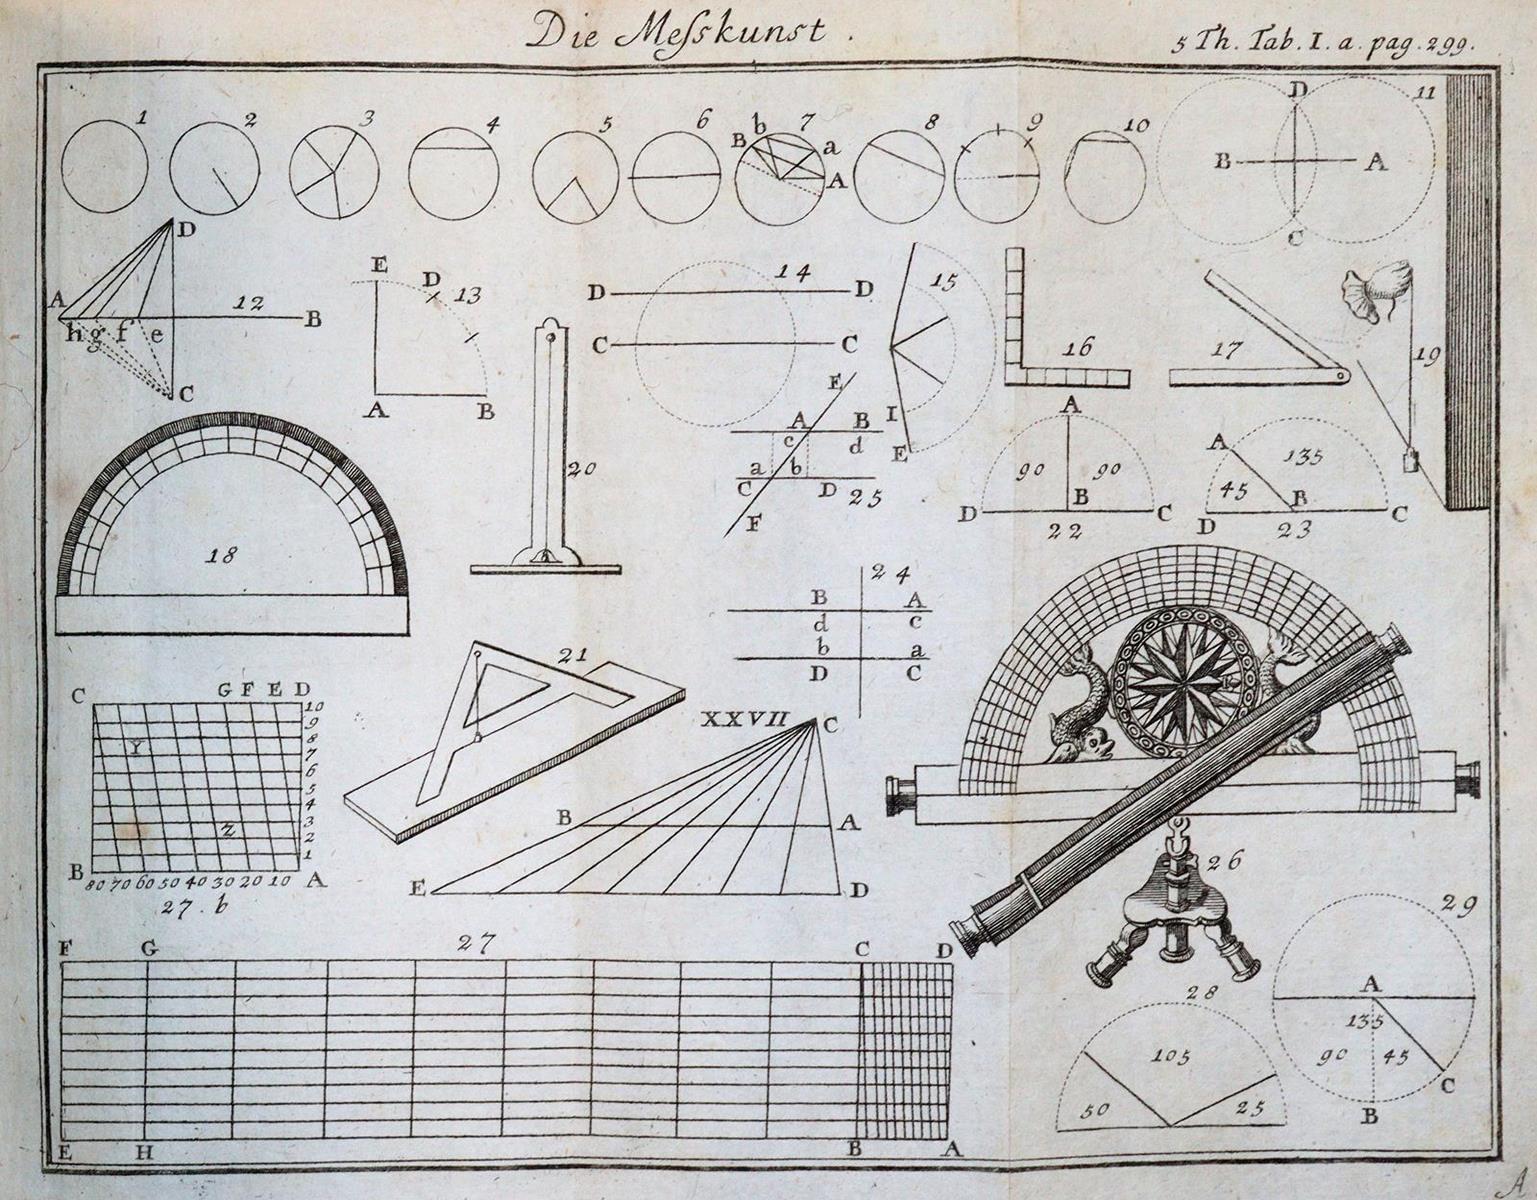 Die Meſskunst .
5 Th. Tab. I. a. pag. 299.
1 2 3 4 5 6 7 8 9 10 11
B b a A
D
B A
C
D
A B
12
h g f e
C
E
D
13
A B
14
D D
C C
15
I
E
16
17
19
18
20
E
A B
c d
a b
C D
25
F
A
90 90
D B C
22
A
135
45
B
D C
23
24
B A
d c
b a
D C
21
C G F E D
10
9
8
7
6
5
4
3
2
1
Y
z
B A
80 70 60 50 40 30 20 10
27. b
XXVII
C
B A
E D
26
27
F G C D
E H B A
28
105
50 25
29
A
135
90 45
C
B
A